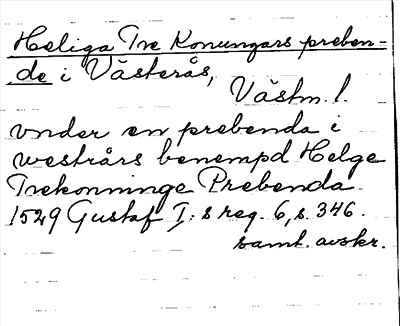 Heliga Tre Konungars preben-
de i Västerås,
Västm. l.
vnder en prebenda i
westrårs benempd Helge
Trekonninge Prebenda.
1529 Gustaf I:s reg. 6, s. 346.
samt. avskr.